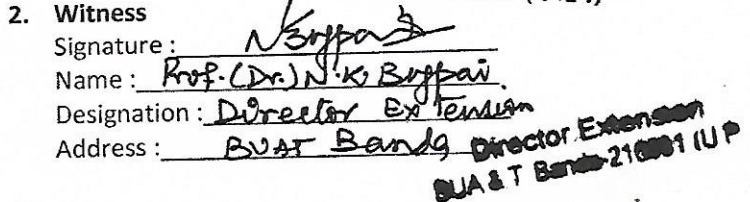 2. Witness
Signature :
Name : Prof. (Dr.) N. K. Bajpai
Designation : Director Extension
Address : BUAT Banda
Director Extension
BUA & T Banda-210001 (U P